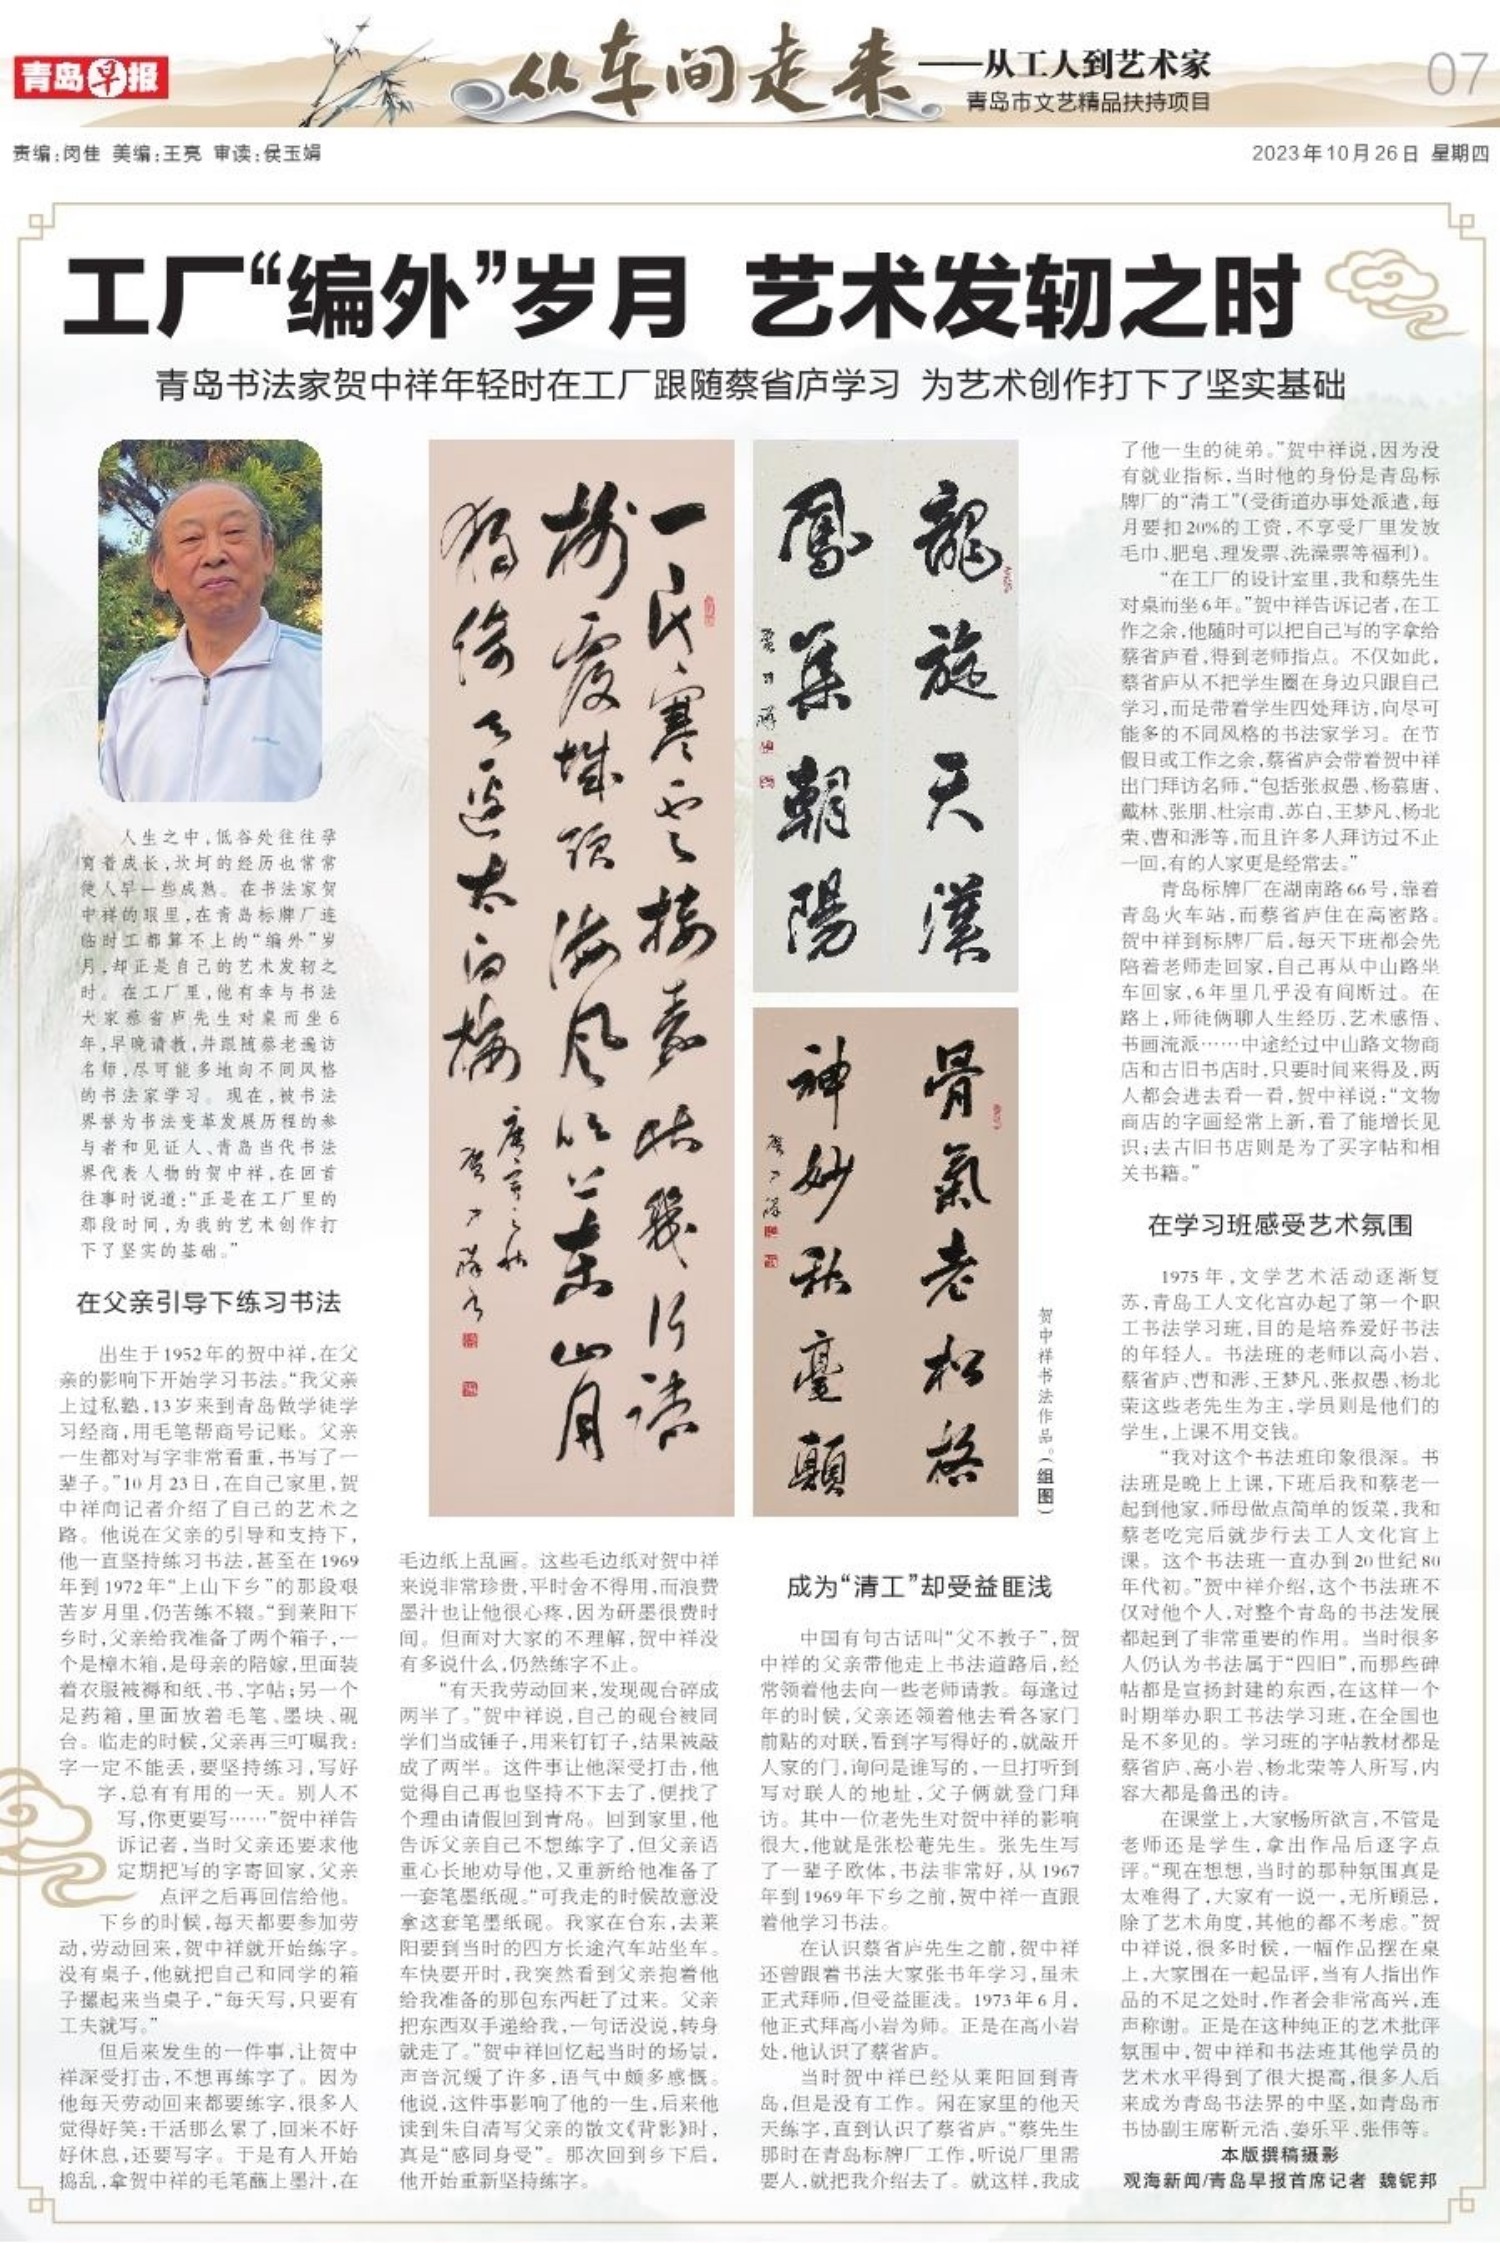 青岛早报
从车间走来
——从工人到艺术家
青岛市文艺精品扶持项目
07
责编:闵佳 美编:王亮 审读:侯玉娟
2023年10月26日 星期四
工厂“编外”岁月 艺术发轫之时
青岛书法家贺中祥年轻时在工厂跟随蔡省庐学习 为艺术创作打下了坚实基础
人生之中,低谷处往往孕
育着成长,坎坷的经历也常常
使人早一些成熟。在书法家贺
中祥的眼里,在青岛标牌厂连
临时工都算不上的“编外”岁
月,却正是自己的艺术发轫之
时。在工厂里,他有幸与书法
大家蔡省庐先生对桌而坐6
年,早晚请教,并跟随蔡老遍访
名师,尽可能多地向不同风格
的书法家学习。现在,被书法
界誉为书法变革发展历程的参
与者和见证人、青岛当代书法
界代表人物的贺中祥,在回首
往事时说道:“正是在工厂里的
那段时间,为我的艺术创作打
下了坚实的基础。”
在父亲引导下练习书法
出生于1952年的贺中祥,在父
亲的影响下开始学习书法。“我父亲
上过私塾,13岁来到青岛做学徒学
习经商,用毛笔帮商号记账。父亲
一生都对写字非常看重,书写了一
辈子。”10月23日,在自己家里,贺
中祥向记者介绍了自己的艺术之
路。他说在父亲的引导和支持下,
他一直坚持练习书法,甚至在1969
年到1972年“上山下乡”的那段艰
苦岁月里,仍苦练不辍。“到莱阳下
乡时,父亲给我准备了两个箱子,一
个是樟木箱,是母亲的陪嫁,里面装
着衣服被褥和纸、书、字帖;另一个
是药箱,里面放着毛笔、墨块、砚
台。临走的时候,父亲再三叮嘱我:
字一定不能丢,要坚持练习,写好
字,总有有用的一天。别人不
写,你更要写……”贺中祥告
诉记者,当时父亲还要求他
定期把写的字寄回家,父亲
点评之后再回信给他。
下乡的时候,每天都要参加劳
动,劳动回来,贺中祥就开始练字。
没有桌子,他就把自己和同学的箱
子摞起来当桌子,“每天写,只要有
工夫就写。”
但后来发生的一件事,让贺中
祥深受打击,不想再练字了。因为
他每天劳动回来都要练字,很多人
觉得好笑:干活那么累了,回来不好
好休息,还要写字。于是有人开始
捣乱,拿贺中祥的毛笔蘸上墨汁,在
毛边纸上乱画。这些毛边纸对贺中祥
来说非常珍贵,平时舍不得用,而浪费
墨汁也让他很心疼,因为研墨很费时
间。但面对大家的不理解,贺中祥没
有多说什么,仍然练字不止。
“有天我劳动回来,发现砚台碎成
两半了。”贺中祥说,自己的砚台被同
学们当成锤子,用来钉钉子,结果被敲
成了两半。这件事让他深受打击,他
觉得自己再也坚持不下去了,便找了
个理由请假回到青岛。回到家里,他
告诉父亲自己不想练字了,但父亲语
重心长地劝导他,又重新给他准备了
一套笔墨纸砚。“可我走的时候故意没
拿这套笔墨纸砚。我家在台东,去莱
阳要到当时的四方长途汽车站坐车。
车快要开时,我突然看到父亲抱着他
给我准备的那包东西赶了过来。父亲
把东西双手递给我,一句话没说,转身
就走了。”贺中祥回忆起当时的场景,
声音沉缓了许多,语气中颇多感慨。
他说,这件事影响了他的一生,后来他
读到朱自清写父亲的散文《背影》时,
真是“感同身受”。那次回到乡下后,
他开始重新坚持练字。
龍旋天漢
鳳集朝陽
骨氣老松格
神妙秋毫顛
贺中祥书法作品。(组图)
成为“清工”却受益匪浅
中国有句古话叫“父不教子”,贺
中祥的父亲带他走上书法道路后,经
常领着他去向一些老师请教。每逢过
年的时候,父亲还领着他去看各家门
前贴的对联,看到字写得好的,就敲开
人家的门,询问是谁写的,一旦打听到
写对联人的地址,父子俩就登门拜
访。其中一位老先生对贺中祥的影响
很大,他就是张松菴先生。张先生写
了一辈子欧体,书法非常好,从1967
年到1969年下乡之前,贺中祥一直跟
着他学习书法。
在认识蔡省庐先生之前,贺中祥
还曾跟着书法大家张书年学习,虽未
正式拜师,但受益匪浅。1973年6月,
他正式拜高小岩为师。正是在高小岩
处,他认识了蔡省庐。
当时贺中祥已经从莱阳回到青
岛,但是没有工作。闲在家里的他天
天练字,直到认识了蔡省庐。“蔡先生
那时在青岛标牌厂工作,听说厂里需
要人,就把我介绍去了。就这样,我成
了他一生的徒弟。”贺中祥说,因为没
有就业指标,当时他的身份是青岛标
牌厂的“清工”(受街道办事处派遣,每
月要扣20%的工资,不享受厂里发放
毛巾、肥皂、理发票、洗澡票等福利)。
“在工厂的设计室里,我和蔡先生
对桌而坐6年。”贺中祥告诉记者,在工
作之余,他随时可以把自己写的字拿给
蔡省庐看,得到老师指点。不仅如此,
蔡省庐从不把学生圈在身边只跟自己
学习,而是带着学生四处拜访,向尽可
能多的不同风格的书法家学习。在节
假日或工作之余,蔡省庐会带着贺中祥
出门拜访名师,“包括张叔愚、杨慕唐、
戴林、张朋、杜宗甫、苏白、王梦凡、杨北
荣、曹和浵等,而且许多人拜访过不止
一回,有的人家更是经常去。”
青岛标牌厂在湖南路66号,靠着
青岛火车站,而蔡省庐住在高密路。
贺中祥到标牌厂后,每天下班都会先
陪着老师走回家,自己再从中山路坐
车回家,6年里几乎没有间断过。在
路上,师徒俩聊人生经历、艺术感悟、
书画流派……中途经过中山路文物商
店和古旧书店时,只要时间来得及,两
人都会进去看一看,贺中祥说:“文物
商店的字画经常上新,看了能增长见
识;去古旧书店则是为了买字帖和相
关书籍。”
在学习班感受艺术氛围
1975年,文学艺术活动逐渐复
苏,青岛工人文化宫办起了第一个职
工书法学习班,目的是培养爱好书法
的年轻人。书法班的老师以高小岩、
蔡省庐、曹和浵、王梦凡、张叔愚、杨北
荣这些老先生为主,学员则是他们的
学生,上课不用交钱。
“我对这个书法班印象很深。书
法班是晚上上课,下班后我和蔡老一
起到他家,师母做点简单的饭菜,我和
蔡老吃完后就步行去工人文化宫上
课。这个书法班一直办到20世纪80
年代初。”贺中祥介绍,这个书法班不
仅对他个人,对整个青岛的书法发展
都起到了非常重要的作用。当时很多
人仍认为书法属于“四旧”,而那些碑
帖都是宣扬封建的东西,在这样一个
时期举办职工书法学习班,在全国也
是不多见的。学习班的字帖教材都是
蔡省庐、高小岩、杨北荣等人所写,内
容大都是鲁迅的诗。
在课堂上,大家畅所欲言,不管是
老师还是学生,拿出作品后逐字点
评。“现在想想,当时的那种氛围真是
太难得了,大家有一说一,无所顾忌,
除了艺术角度,其他的都不考虑。”贺
中祥说,很多时候,一幅作品摆在桌
上,大家围在一起品评,当有人指出作
品的不足之处时,作者会非常高兴,连
声称谢。正是在这种纯正的艺术批评
氛围中,贺中祥和书法班其他学员的
艺术水平得到了很大提高,很多人后
来成为青岛书法界的中坚,如青岛市
书协副主席靳元浩、姜乐平、张伟等。
本版撰稿摄影
观海新闻/青岛早报首席记者 魏铌邦